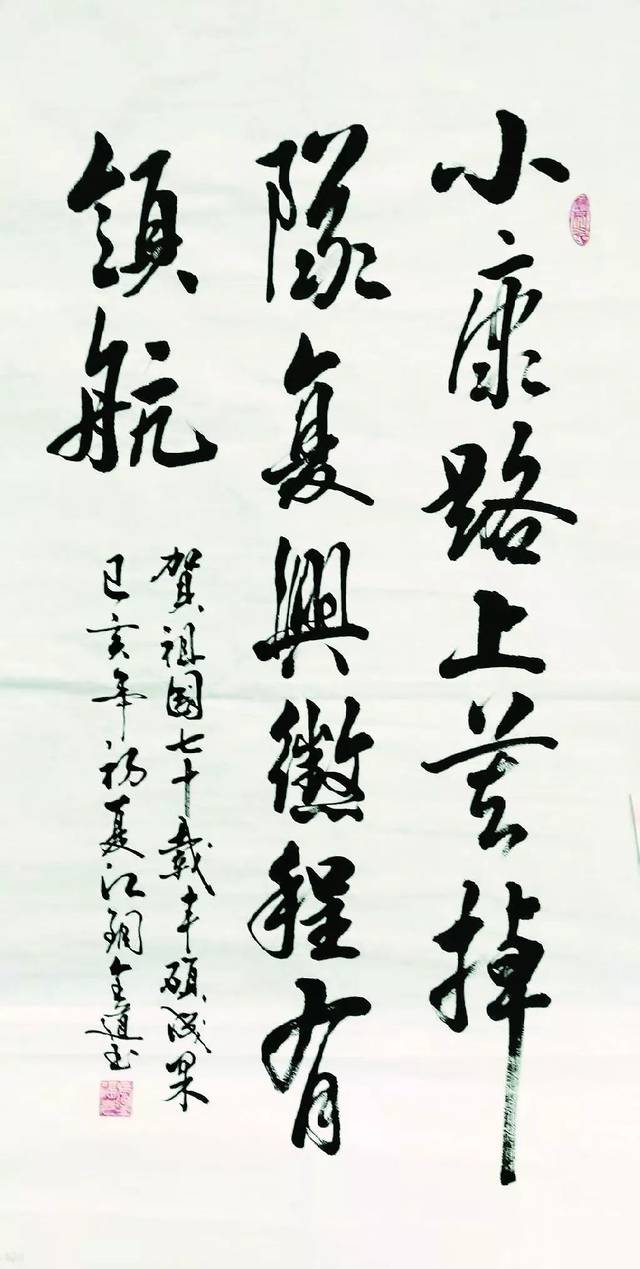 小康路上莫掉
隊复興徵程有
領航
賀祖國七十載丰碩成果
己亥年初夏江金道